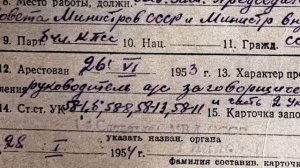 8. Место работы, должн.
Совета Министров СССР и Министр
9. Парт. был КПСС 10. Нац. 11. Гражд.
12. Арестован "26" VI 1953 г. 13. Характер
руководитель а/с заговорщической
14. Ст.ст. УК 58-1б, 58-8, 58-13, 58-11
15. Карточка
указать назван. органа
28 I 1954 г.
Фамилия состав. карточку